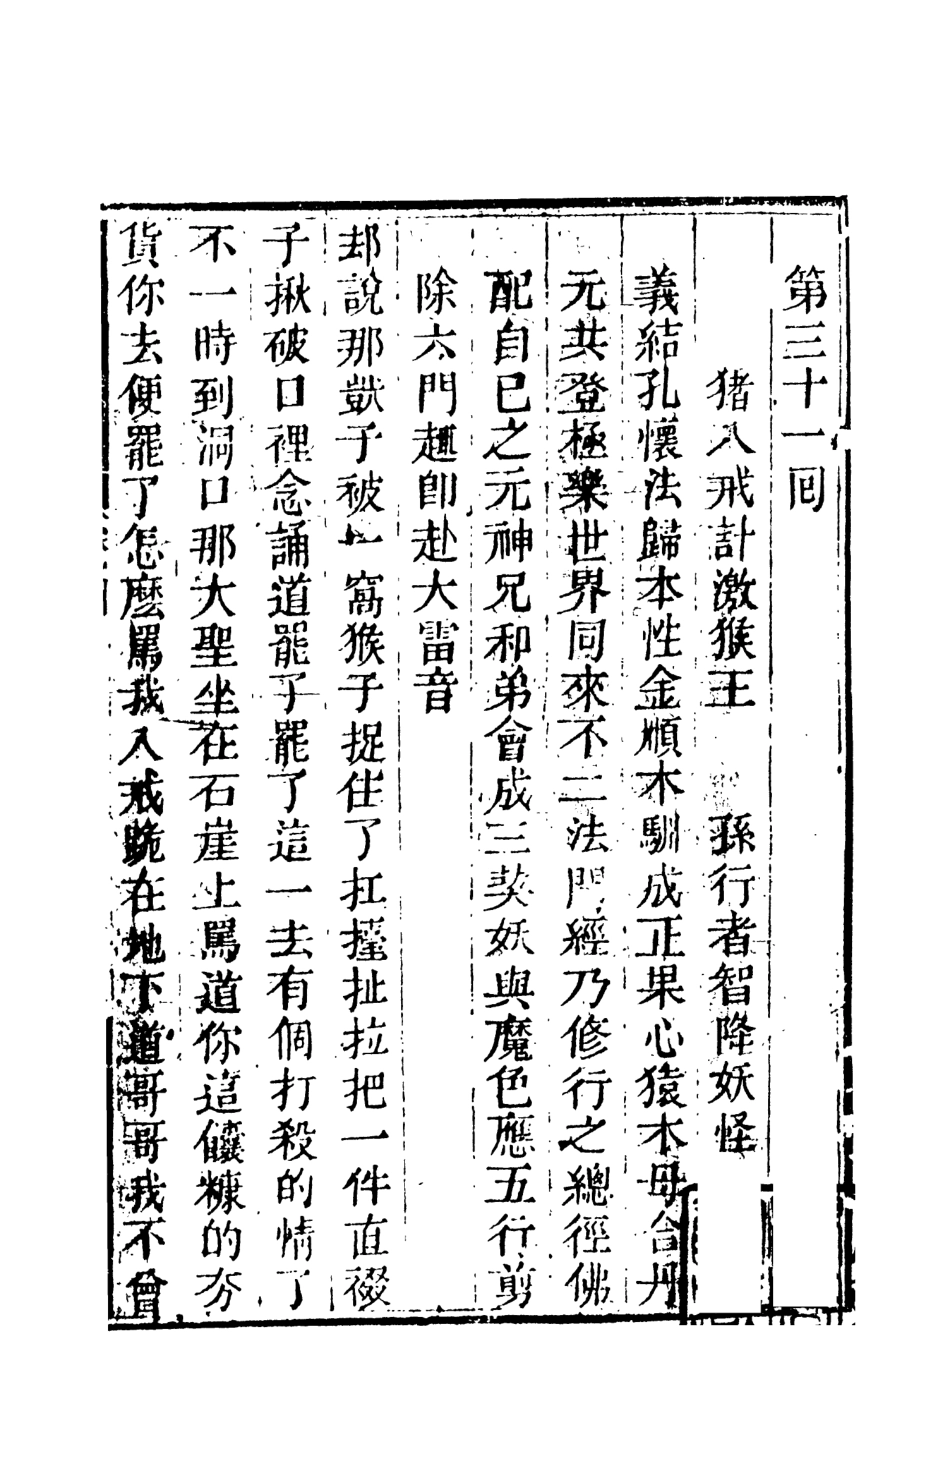 第三十一回
猪八戒計激猴王　孫行者智降妖怪
義結孔懷法歸本性金順木馴成正果心猿木母合丹
元共登極樂世界同來不二法門經乃修行之總徑佛
配自己之元神兄和弟會成三契妖與魔色應五行剪
除六門趣即赴大雷音
却說那獃子被一窩猴子捉住了扛擡扯拉把一件直裰
子揪破口裡念誦道罷了罷了這一去有個打殺的情了
不一時到洞口那大聖坐在石崖上罵道你這饢糠的夯
貨你去便罷了怎麼罵我八戒跪在地下道哥哥我不曾